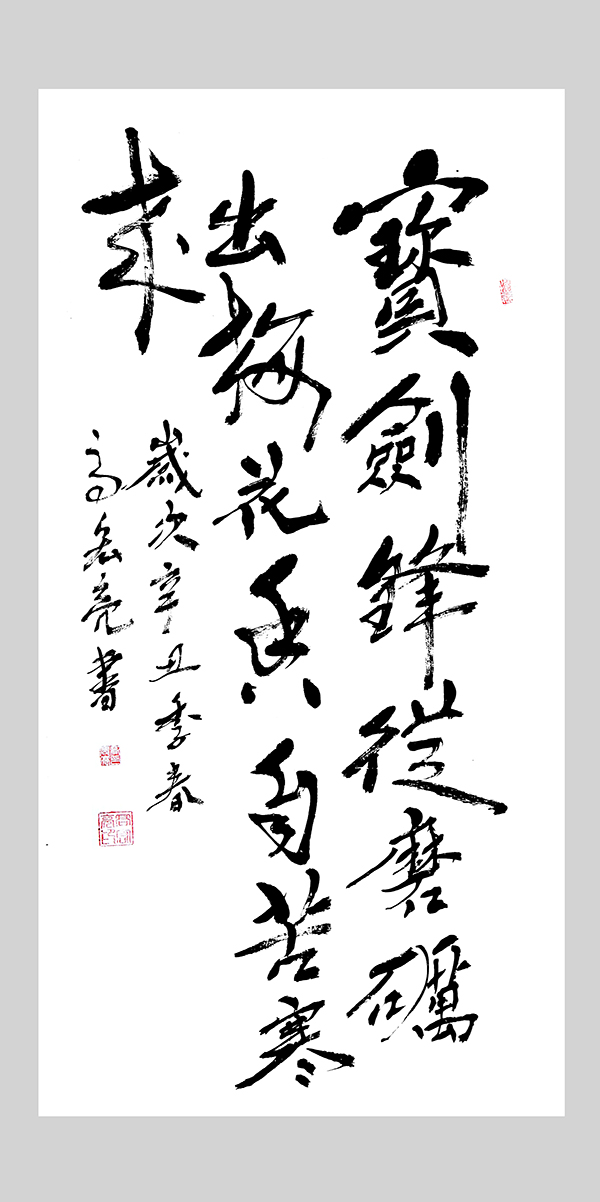 寶劍鋒從磨礪
出梅花香自苦寒
來
歲次辛丑季春
高宏亮書